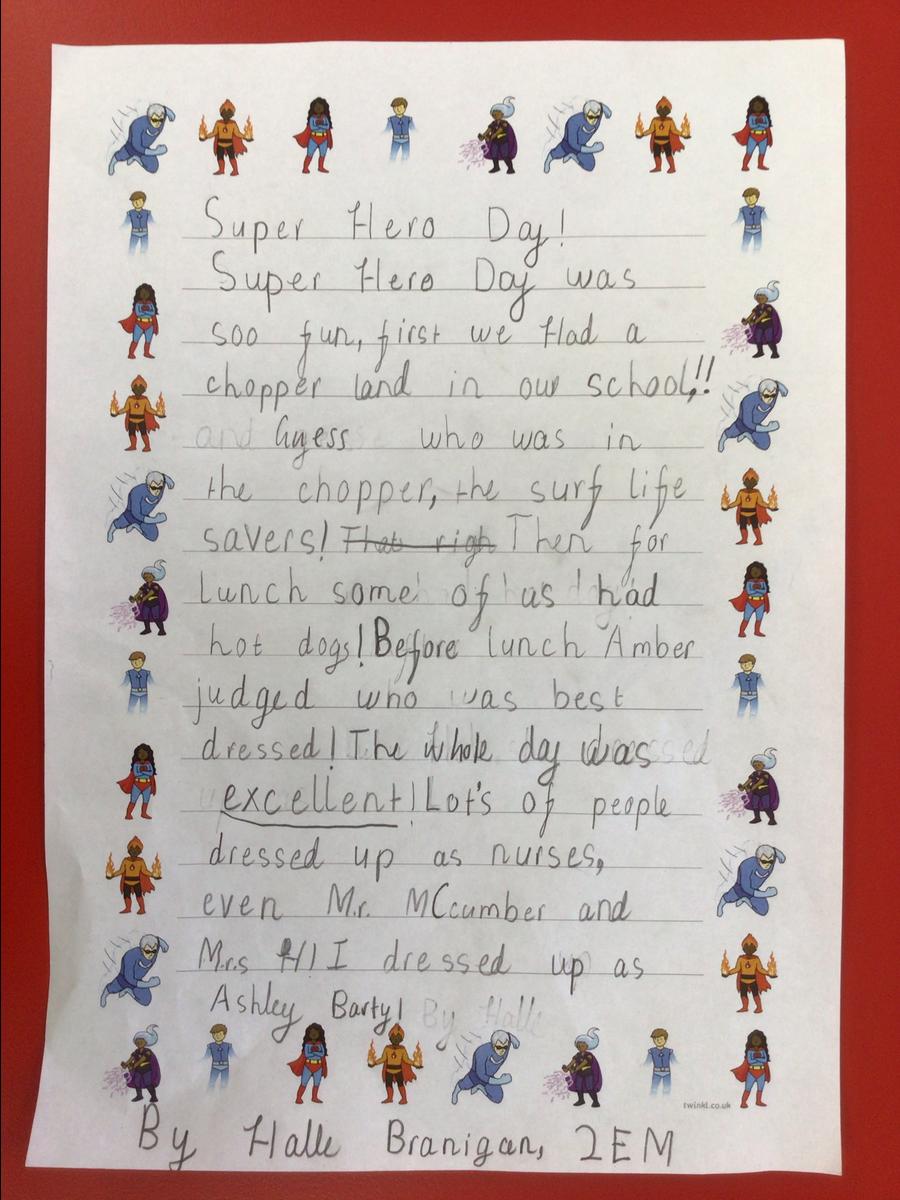 Super Hero Day!
Super Hero Day was
soo fun, first we Had a
chopper land in our school,!!
and Guess who was in
the chopper, the surf life
savers! That righ Then for
lunch some of us had
hot dogs! Before lunch Amber
judged who was best
dressed! The whole day was
excellent! Lot's of people
dressed up as nurses,
even Mr. MCcumber and
Mrs H! I dressed up as
Ashley Barty! By Halle
twinkl.co.uk
By Halle Branigan, 2EM